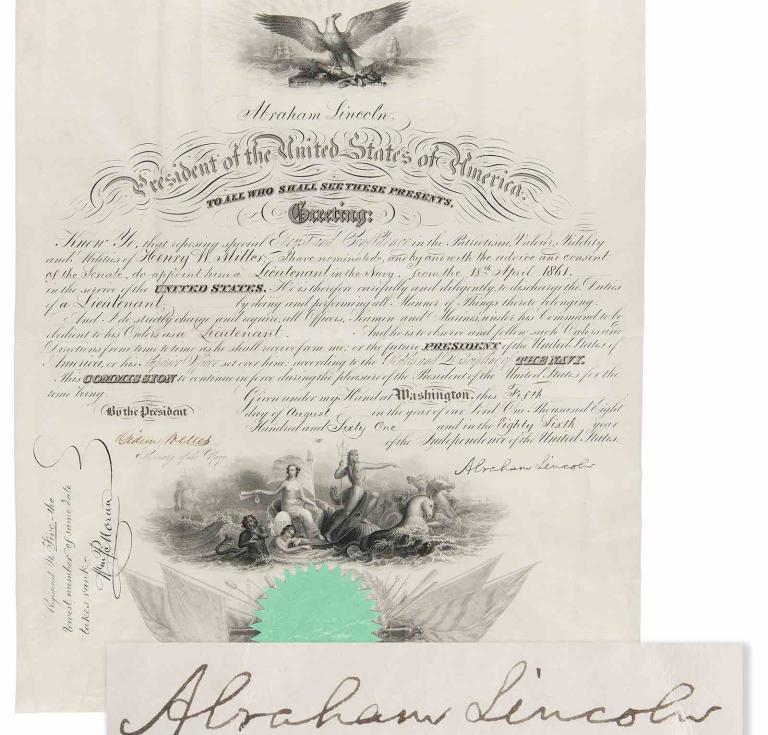 Abraham Lincoln.
President of the United States of America.
TO ALL WHO SHALL SEE THESE PRESENTS,
Greeting:
Know Ye, that reposing special Trust and Confidence in the Patriotism, Valour, Fidelity
and Abilities of Henry W. Miller, I have nominated, and by and with the advice and consent
of the Senate, do appoint him a Lieutenant in the Navy, from the 18th April 1861.
in the service of the UNITED STATES. He is therefore carefully and diligently to discharge the Duties
of a Lieutenant by doing and performing all Manner of Things thereto belonging.
And I do strictly charge and require all Officers, Seamen and Marines under his Command to be
obedient to his Orders as a Lieutenant. And he is to observe and follow such Orders and
Directions from time to time as he shall receive from me, or the future PRESIDENT of the United States of
America, or his Superior Officer set over him, according to the Rules and Discipline of THE NAVY.
This COMMISSION to continue in force during the pleasure of the President of the United States for the
time being.
Given under my Hand at Washington, this Fifth
By the President
day of August in the year of our Lord One Thousand Eight
Hundred and Sixty One and in the Eighty Sixth year
Gideon Welles
of the Independence of the United States.
Secretary of the Navy.
Abraham Lincoln
Registered No. Five - the
lowest number of same date
takes rank.
Abraham Lincoln